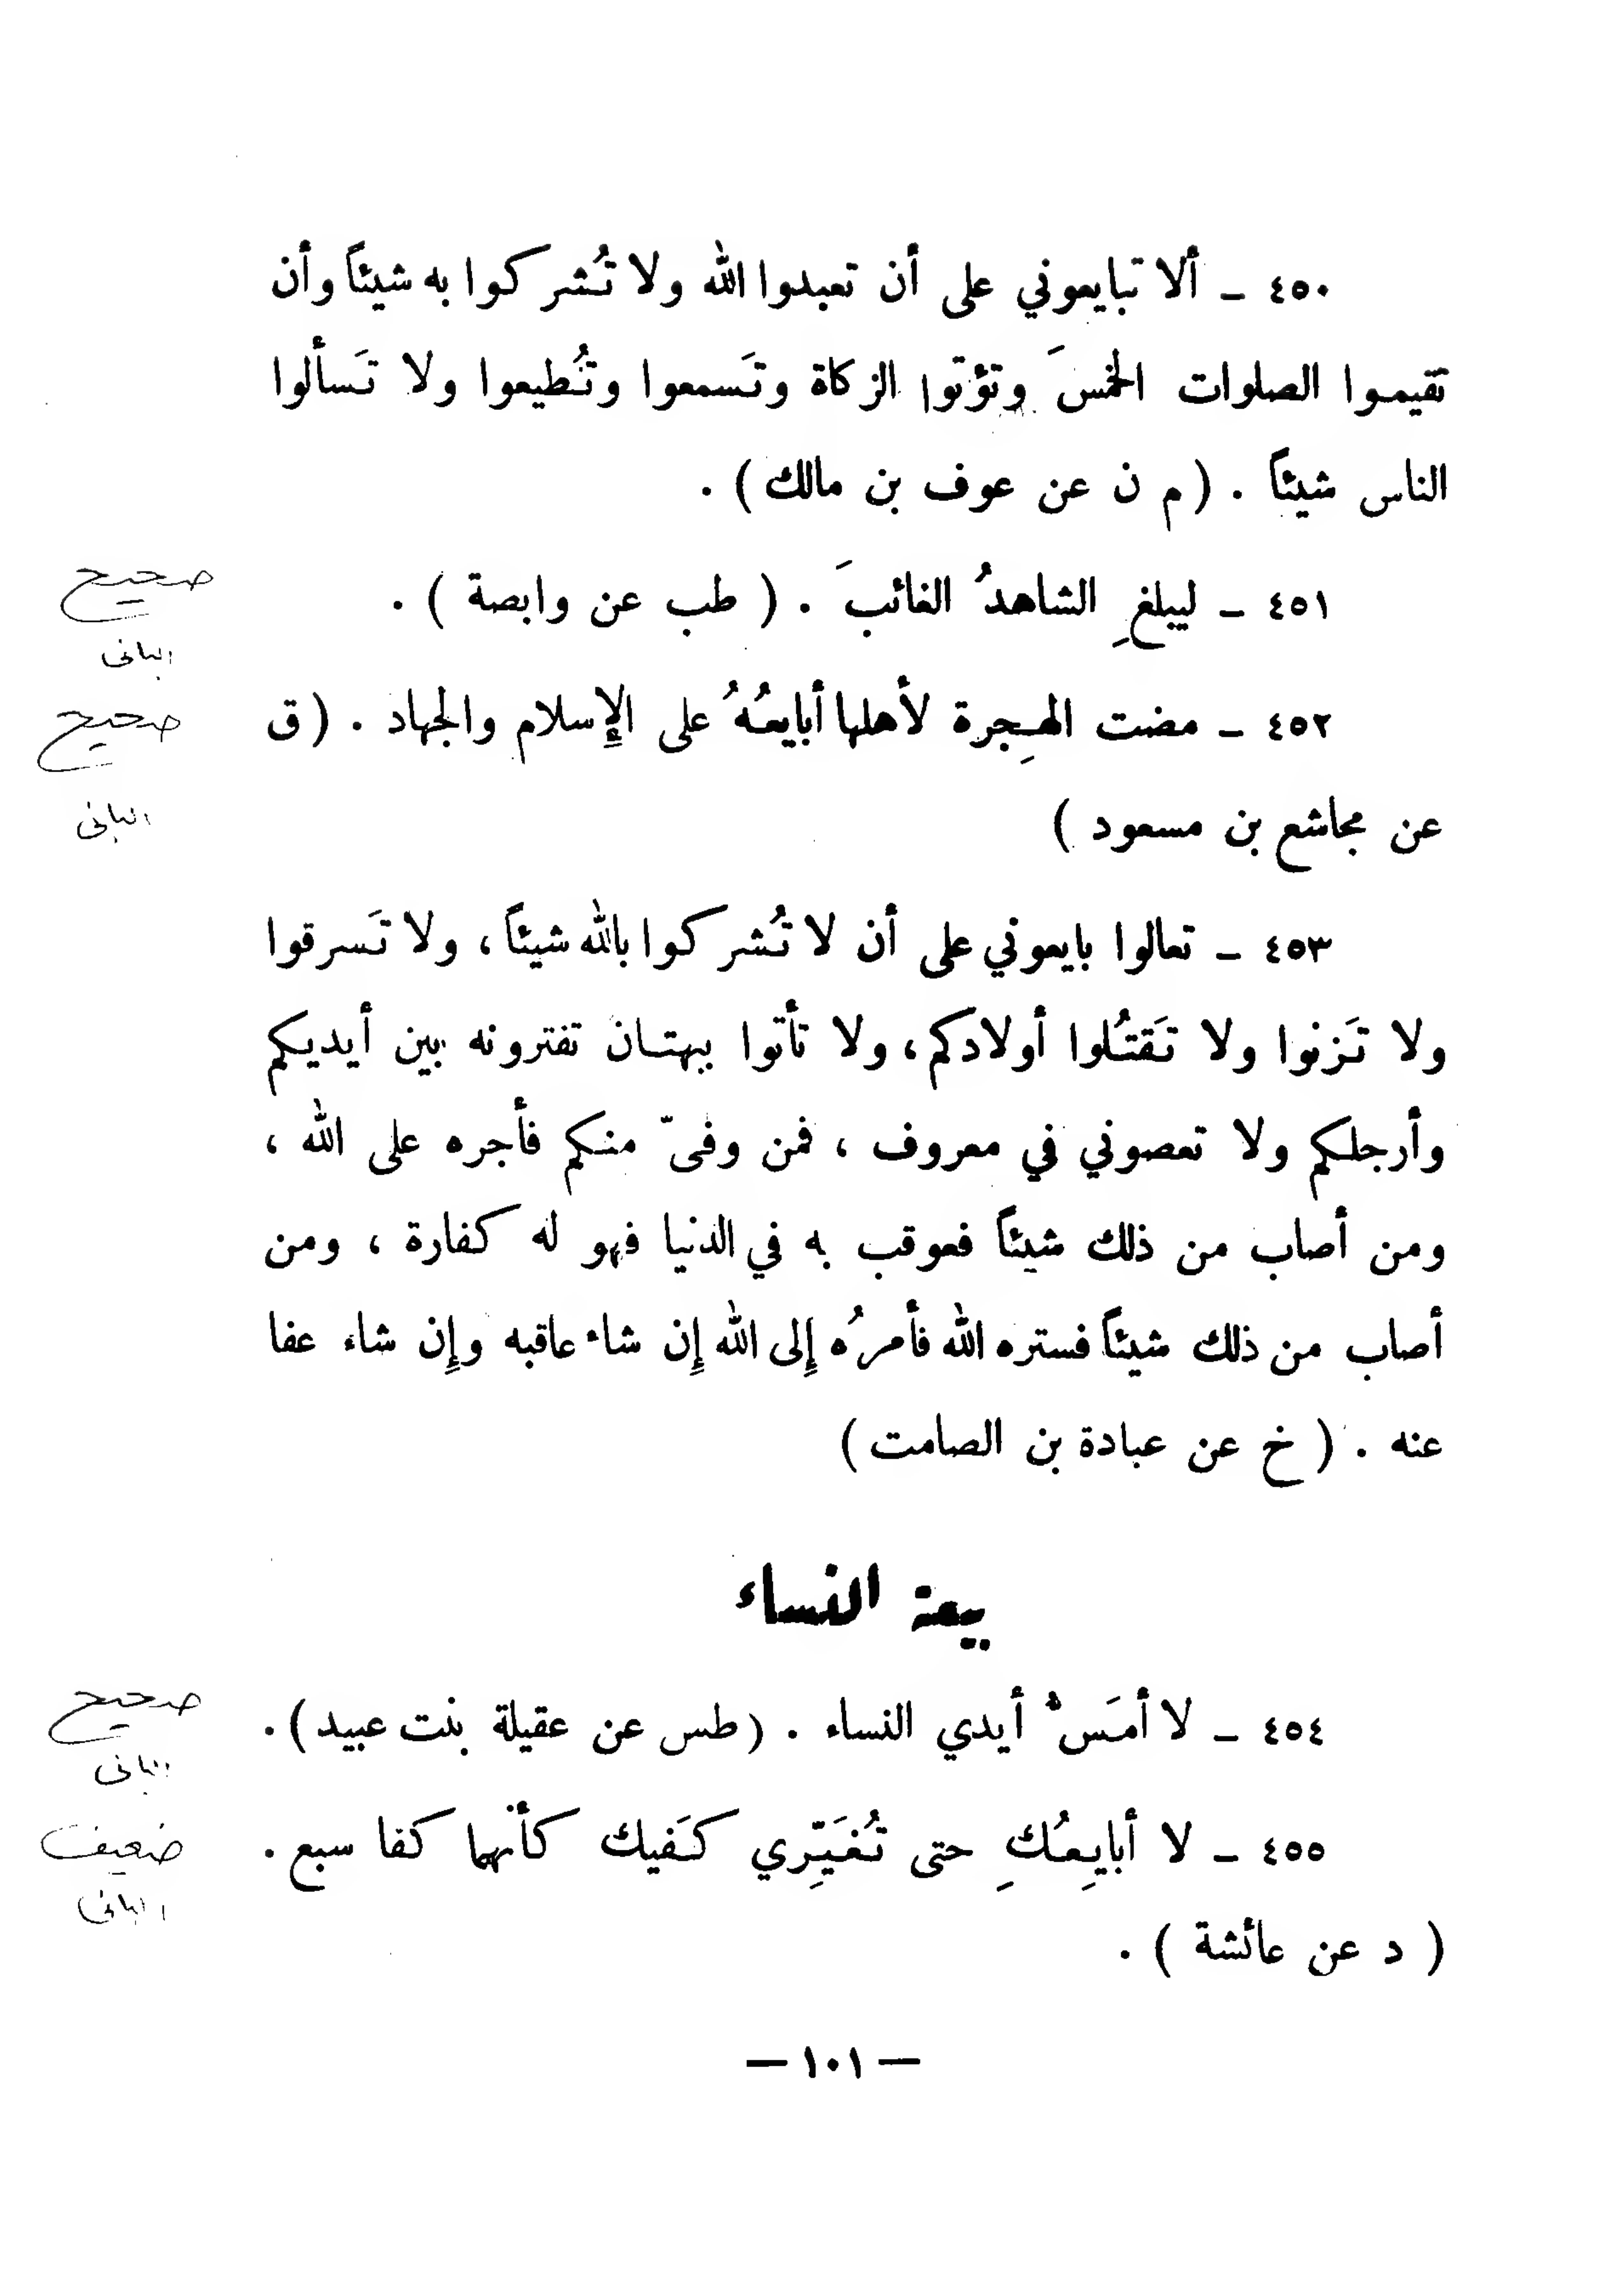 ٤٥٠ ـ ألا تبايعوني على أن تعبدوا الله ولا تُشركوا به شيئاً وأن
تقيموا الصلوات الخمسَ وتؤتوا الزكاة وتَسمعوا وتُطيعوا ولا تَسألوا
الناس شيئاً . ( م ن عن عوف بن مالك ) .
٤٥١ ـ ليبلغِ الشاهدُ الغائبَ . ( طب عن وابصة ) .
صحيح
البانى
٤٥٢ ـ مضت الهِجرة لأهلها أبايعُهُ على الإسلام والجهاد . ( ق
صحيح
البانى
عن مجاشع بن مسعود )
٤٥٣ ـ تعالوا بايعوني على أن لا تُشركوا بالله شيئاً ، ولا تَسرقوا
ولا تَزنوا ولا تَقتُلوا أولادكم ، ولا تأتوا ببهتان تفترونه بين أيديكم
وأرجلكم ولا تعصوني في معروف ، فمن وفىّ منكم فأجره على الله ،
ومن أصاب من ذلك شيئاً فعوقب به في الدنيا فهو له كفارة ، ومن
أصاب من ذلك شيئاً فستره الله فأمرُه إلى الله إن شاء عاقبه وإن شاء عفا
عنه . ( خ عن عبادة بن الصامت )
بيعة النساء
٤٥٤ ـ لا أمَسُّ أيدي النساء . ( طس عن عقيلة بنت عبيد ) .
صحيح
البانى
٤٥٥ ـ لا أبايِعُكِ حتى تُغَيِّري كَفيك كأنهما كفا سبع .
ضعيف
البانى
( د عن عائشة ) .
— ١٠١ —